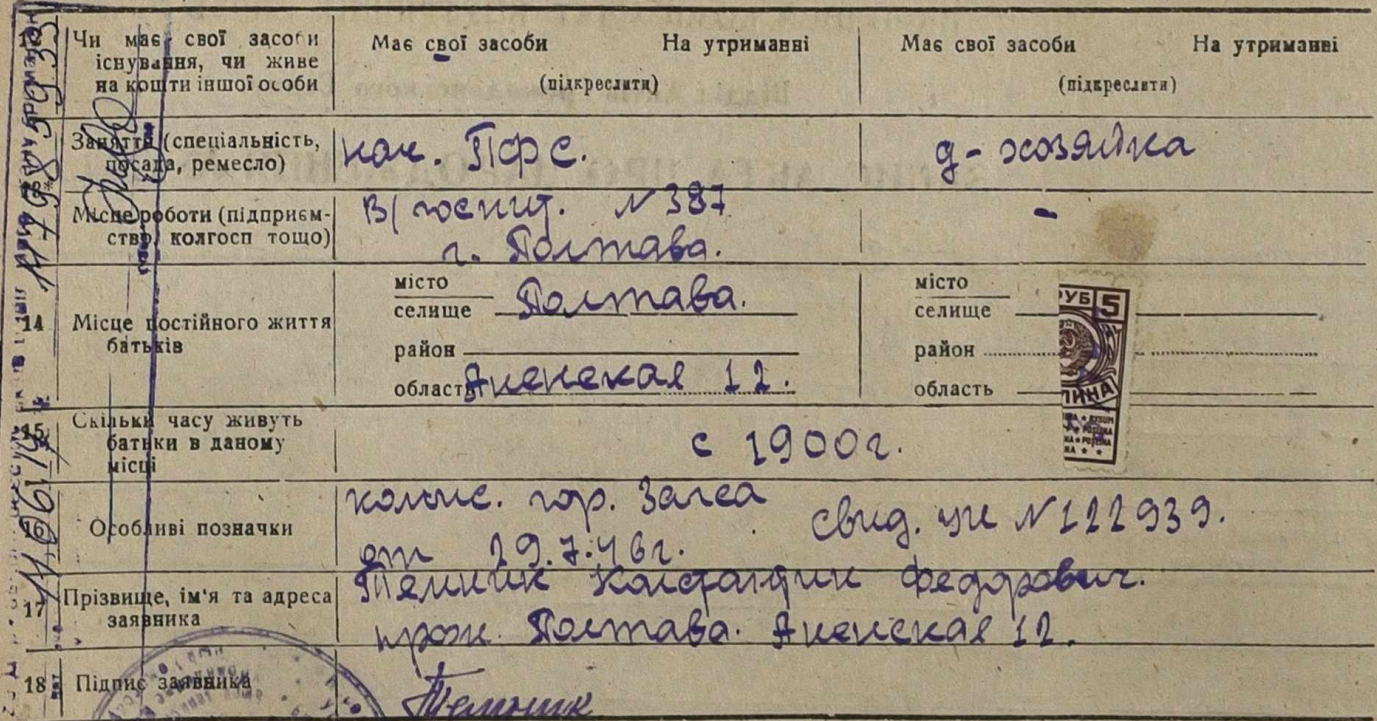 Чи має свої засоби існування, чи живе на кошти іншої особи
Має свої засоби На утриманні
(підкреслити)
Має свої засоби На утриманні
(підкреслити)
Заняття (спеціальність, посада, ремесло)
нач. ПФС.
д-хозяйка
Місце роботи (підприємство, колгосп тощо)
В/госпит. N 387
г. Полтава.
-
14 Місце постійного життя батьків
місто
селище Полтава.
район
область Аненская 12.
місто
селище
район
область
РУБ 5
15 Скільки часу живуть батьки в даному місці
с 1900г.
16 Особливі позначки
комис. гор. Загса
от 29.7.46г.
свид. N 122939.
17 Прізвище, ім'я та адреса заявника
Темник Федорович.
прож. Полтава. Аненская 12.
18 Підпис заявника
Темник